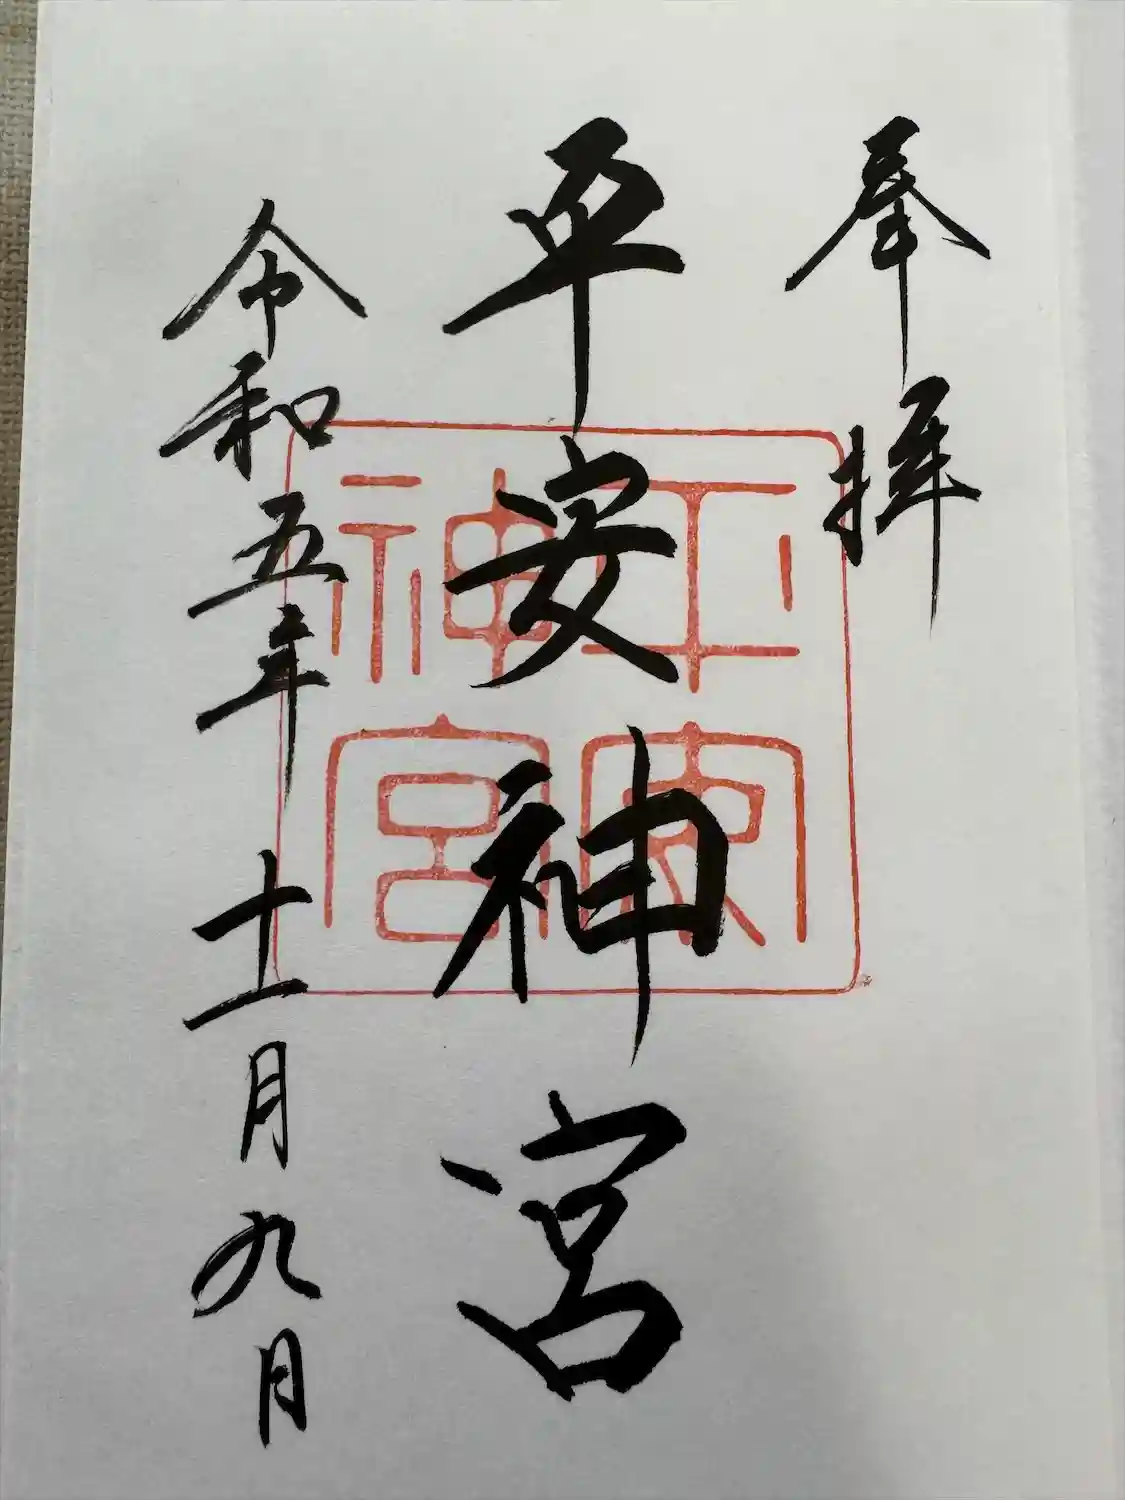 奉拝
平安神宮
令和五年十一月九日
平安
神宮